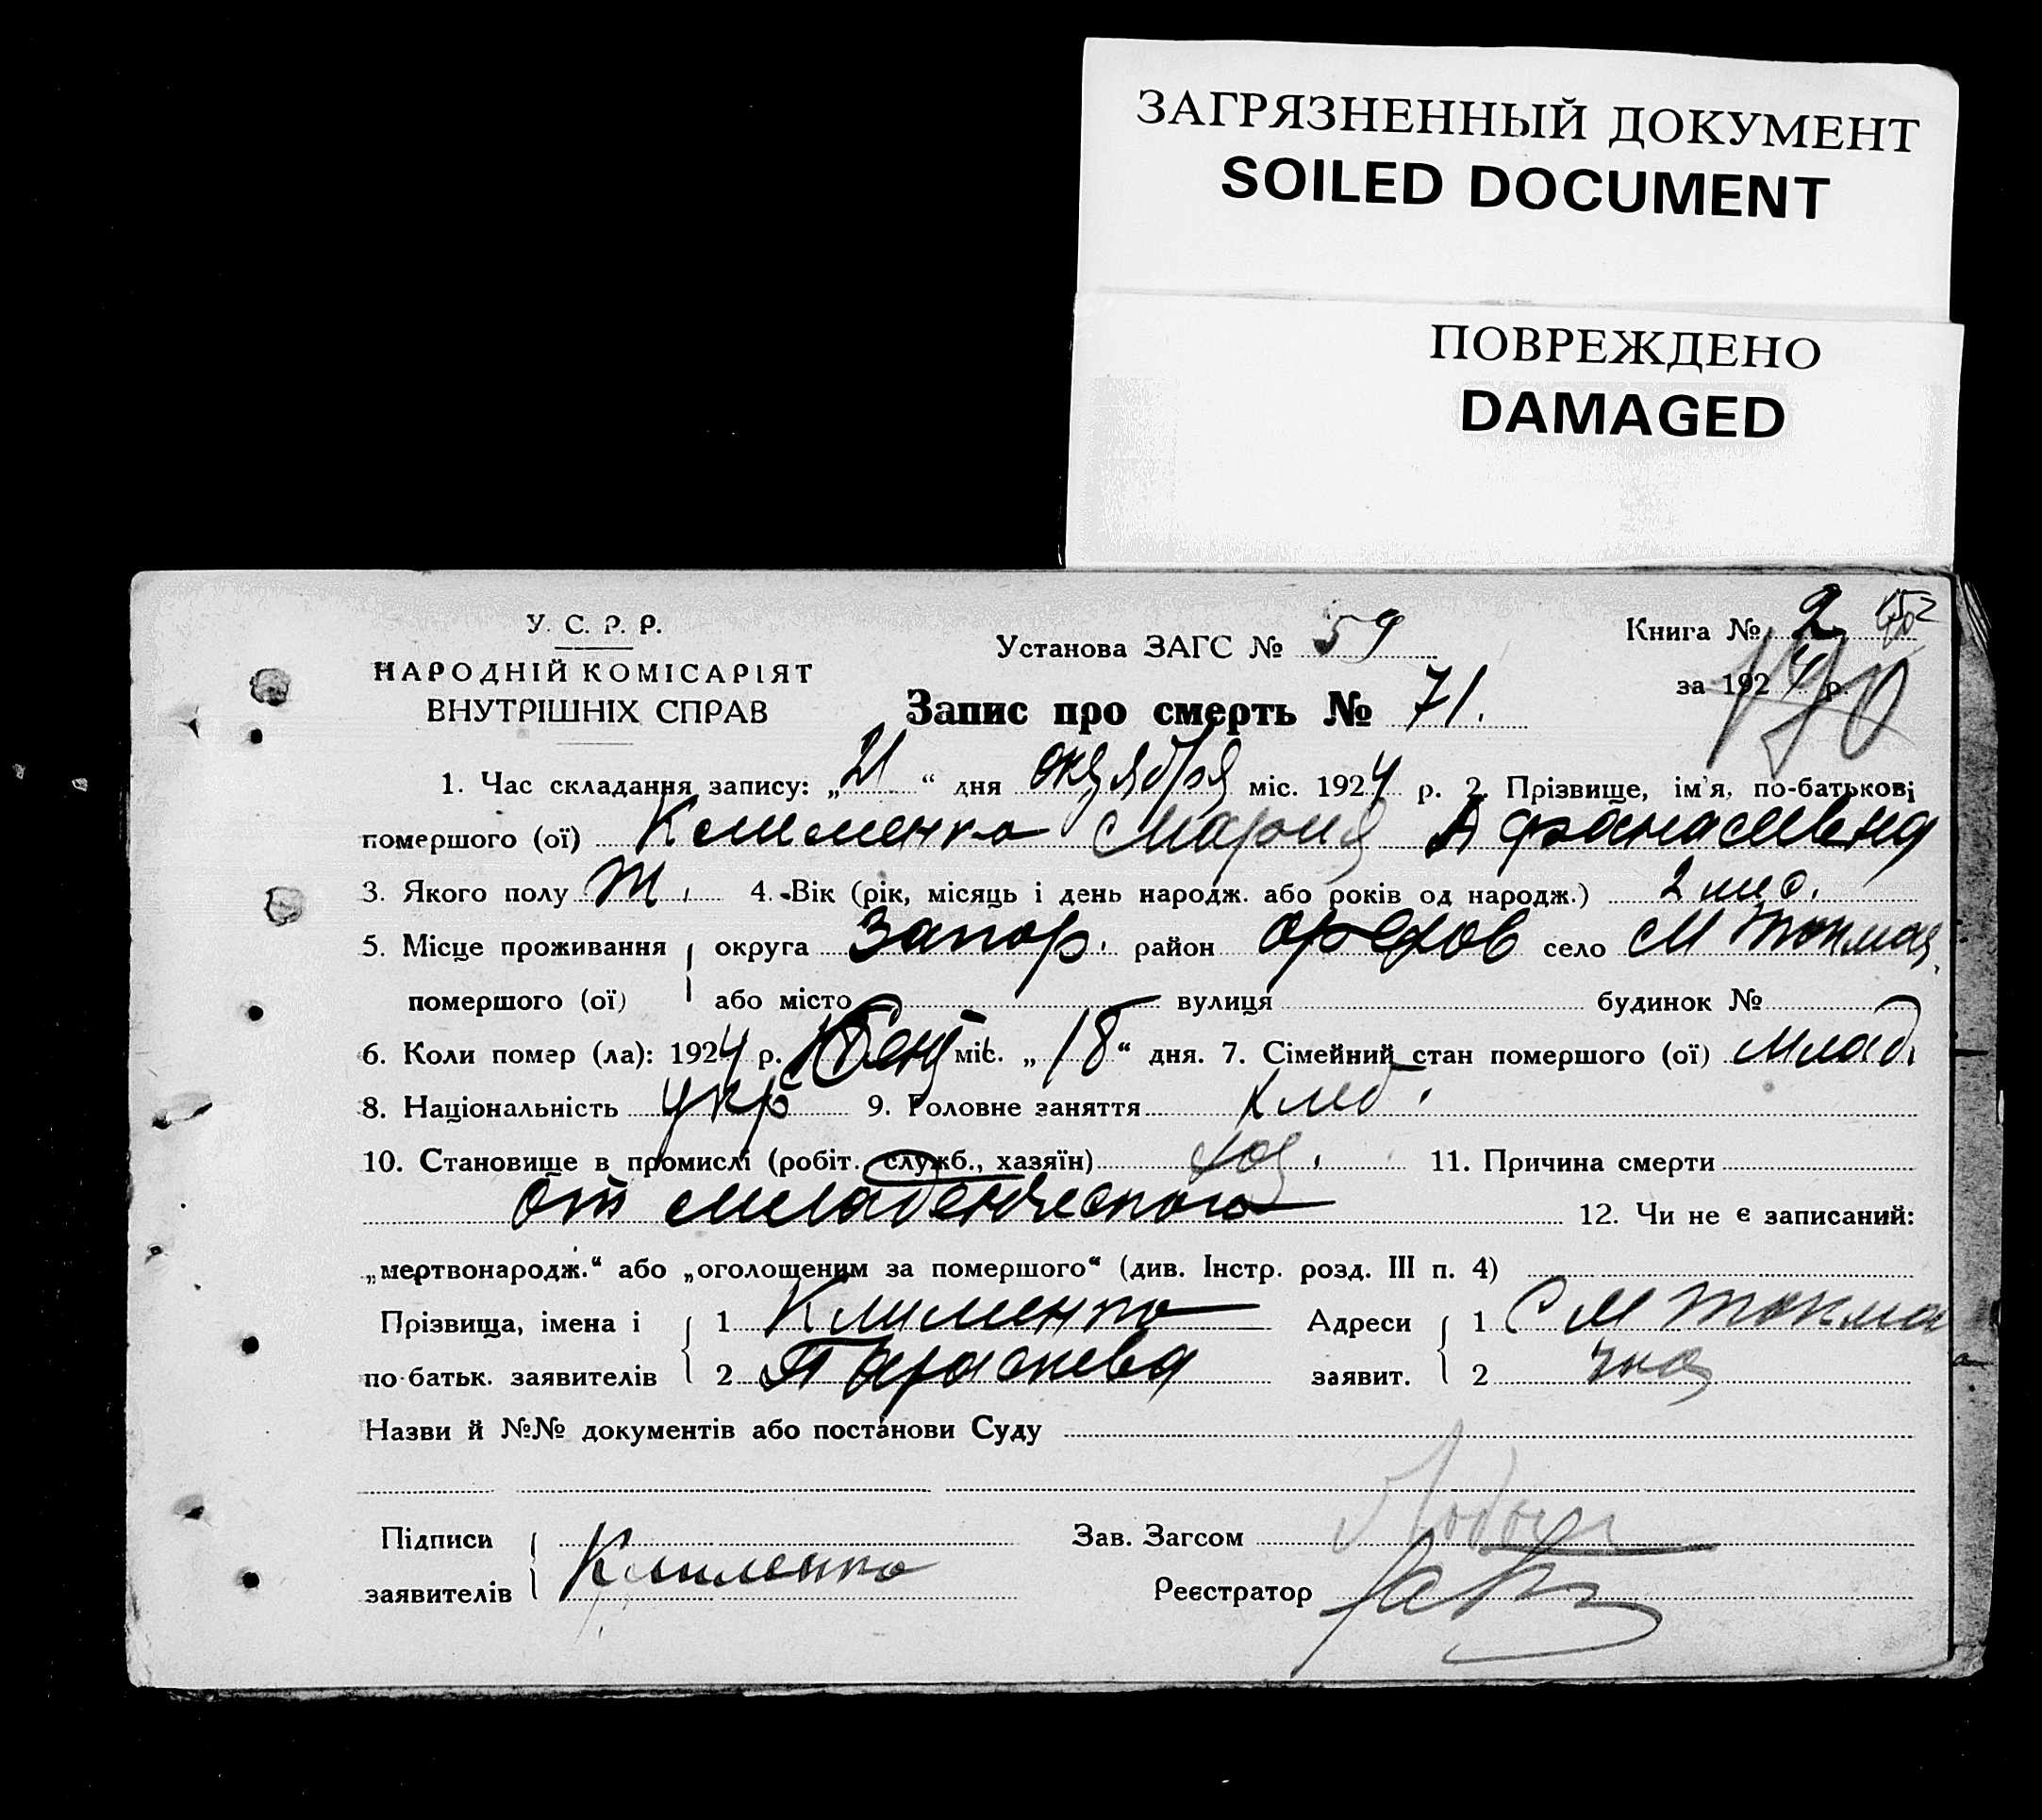 ЗАГРЯЗНЕННЫЙ ДОКУМЕНТ
SOILED DOCUMENT
ПОВРЕЖДЕНО
DAMAGED
У. С. Р. Р.
НАРОДНІЙ КОМІСАРІЯТ
ВНУТРІШНІХ СПРАВ
Установа ЗАГС № 59
Книга № 2
за 1924 р.
190
Запис про смерть № 71.
1. Час складання запису: „21“ дня октября міс. 1924 р. 2. Прізвище, ім'я, по-батькові
помершого (ої) Клименко Мария Афанасиевна
3. Якого полу ж. 4. Вік (рік, місяць і день народж. або років од народж.) 2 мес.
5. Місце проживання округа Запор. район Орехов село М Токмач
помершого (ої) або місто вулиця будинок №
6. Коли помер (ла): 1924 р. міс. „18“ дня. 7. Сімейний стан помершого (ої) млад.
8. Національність укр 9. Головне заняття хлеб.
10. Становище в промислі (робіт., служб., хазяїн) хоз. 11. Причина смерти
от младенческого 12. Чи не є записаний:
„мертвонародж.“ або „оголошеним за помершого“ (див. Інстр. розд. III п. 4)
Прізвища, імена і 1 Клименко Адреси 1 С М Токма
по-батьк. заявителів 2 Параскева заявит. 2 чка
Назви й №№ документів або постанови Суду
Підписи Зав. Загсом
заявителів Клименко Реєстратор